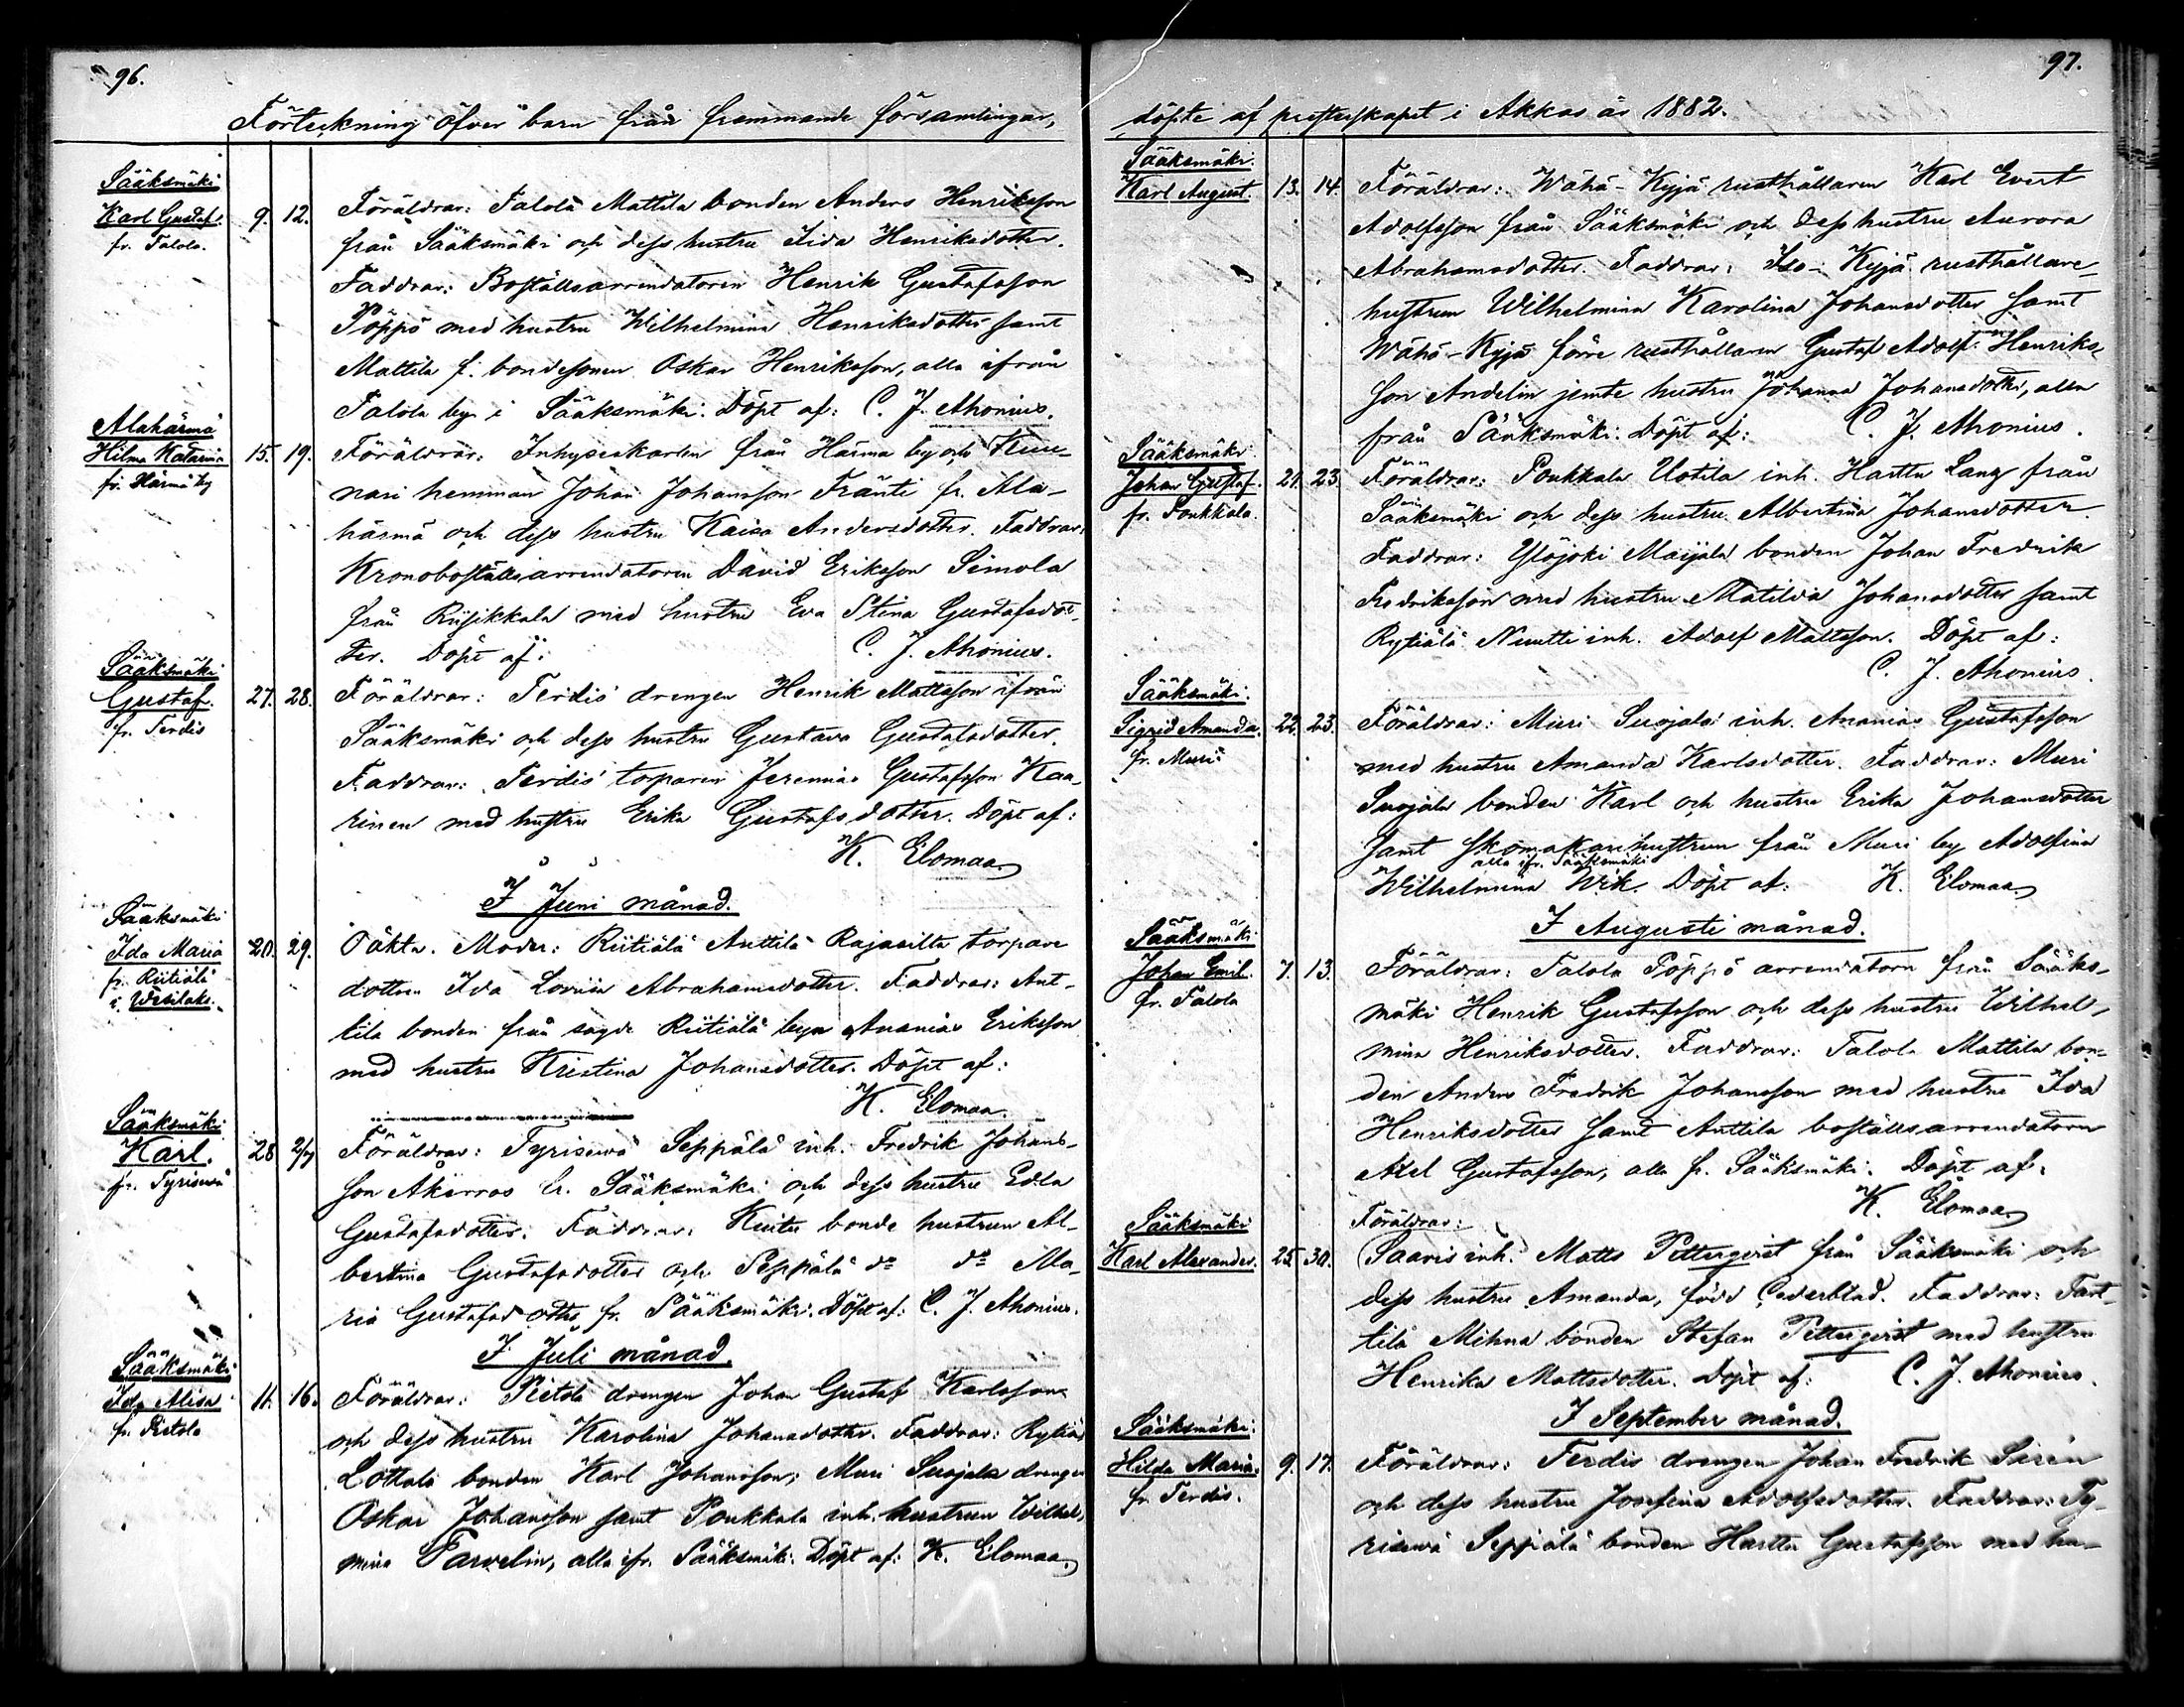 96.
Förteckning öfver barn från främmande församlingar,
Sääksmäki
Karl Gustaf. 9. 12.
fr. Talola.
Föräldrar: Talola Mattila bonden Anders Henriksson
från Sääksmäki och dess hustru Iida Henriksdotter.
Faddrar: Boställsarrendatoren Henrik Gustafsson
Pöppö med hustru Wilhelmina Henriksdotter samt
Mattila f. bondesonen Oskar Henriksson, alla ifrån
Talola by i Sääksmäki. Döpt af: C. J. Ahonius.
Alahärmä
Hilma Katarina 15. 19.
fr. Härmä by
Föräldrar: Inhyseskarlen från Härmä by och Kuu-
nari hemman Johan Johansson Fränti fr. Ala-
härmä och dess hustru Kaisa Andersdotter. Faddrar:
Kronoboställsarrendatoren David Eriksson Simola
från Riisikkala med hustru Eva Stina Gustafsdot-
ter. Döpt af: C. J. Ahonius.
Sääksmäki
Gustaf. 27. 28.
fr. Terdis
Föräldrar: Terdis drengen Henrik Mattsson ifrån
Sääksmäki och dess hustru Gustava Gustafsdotter.
Faddrar: Terdis torparen Jeremias Gustafsson Kaa-
rinen med hustru Erika Gustafsdotter. Döpt af:
K. Elomaa
I Juni månad.
Sääksmäki
Ida Maria 20. 29.
fr. Riitiälä
i Wesilaks.
Oäkta. Moder: Riitiälä Anttila Rajasilta torpare
dottren Ida Lovisa Abrahamsdotter. Faddrar: Ant-
tila bonden från sagde Riitiälä byn Ananias Eriksson
med hustru Kristina Johansdotter. Döpt af:
K. Elomaa.
Sääksmäki
Karl. 28 2/7
fr. Tyrisevä
Föräldrar: Tyrisevä Seppälä inh. Fredrik Johans-
son Åkerros fr. Sääksmäki och dess hustru Edla
Gustafsdotter. Faddrar: Kuitu bonde hustrun Al-
bertina Gustafsdotter och Seppälä do do Ma-
ria Gustafsdotter fr. Sääksmäki. Döpt af: C. J. Ahonius.
I Juli månad.
Sääksmäki
Ida Alisa 11. 16.
fr. Pietola
Föräldrar: Pietola drengen Johan Gustaf Karlsson
och dess hustru Karolina Johansdotter. Faddrar: Rytiälä
Lottala bonden Karl Johansson; Muri Suojala drengen
Oskar Johansson samt Poukkala inh. hustrun Wilhel-
mina Tarvelin, alla ifr. Sääksmäki. Döpt af: K. Elomaa
97.
döpte af presterskapet i Akkas år 1882.
Sääksmäki.
Karl August. 13. 14.
Föräldrar: Wähä-Kyjä rusthållaren Karl Evert
Adolfsson från Sääksmäki och dess hustru Aurora
Abrahamsdotter. Faddrar: Iso-Kyjä rusthållare-
hustrun Wilhelmina Karolina Johansdotter samt
Wähä-Kyjä förre rusthållaren Gustaf Adolf Henriks-
son Andelin jemte hustru Johanna Johansdotter, alla
från Sääksmäki. Döpt af: C. J. Ahonius.
Sääksmäki
Johan Gustaf. 21. 23.
fr. Poukkala.
Föräldrar: Poukkala Uotila inh. Harttu Lang från
Sääksmäki och dess hustru Albertina Johansdotter
Faddrar: Ylöjoki Maijala bonden Johan Fredrik
Fredriksson med hustru Matilda Johansdotter samt
Rytiälä Nuutti inh. Adolf Mattsson. Döpt af:
C. J. Ahonius.
Sääksmäki.
Sigrid Amanda. 22. 23.
fr. Muri
Föräldrar: Muri Suojala inh. Ananias Gustafsson
med hustru Amanda Karlsdotter. Faddrar: Muri
Suojala bonden Karl och hustru Erika Johansdotter
samt skomakarehustrun från Muri by Adolfina
alla ifr. Sääksmäki
Wilhelmina Wik. Döpt af: K. Elomaa
I Augusti månad.
Sääksmäki
Johan Emil. 7. 13.
fr. Talola
Föräldrar: Talola Pöppö arrendatorn från Sääks-
mäki Henrik Gustafsson och dess hustru Wilhel-
mina Henriksdotter. Faddrar: Talola Mattila bon-
den Anders Fredrik Johansson med hustru Ida
Henriksdotter samt Anttila boställsarrendatorn
Axel Gustafsson, alla fr. Sääksmäki. Döpt af:
K. Elomaa
Sääksmäki
Karl Alexander. 25. 30.
Föräldrar:
Saaris inh. Matts Petterqvist från Sääksmäki och
dess hustru Amanda, född Cederblad. Faddrar: Tart-
tila Mihna bonden Stefan Petterqvist med hustru
Henrika Mattsdotter. Döpt af: C. J. Ahonius.
I September månad.
Sääksmäki.
Hilda Maria. 9. 17.
fr. Terdis.
Föräldrar: Terdis drengen Johan Fredrik Sirén
och dess hustru Josefina Adolfsdotter. Faddrar: Ty-
risevä Seppälä bonden Harttu Gustafsson med hu-